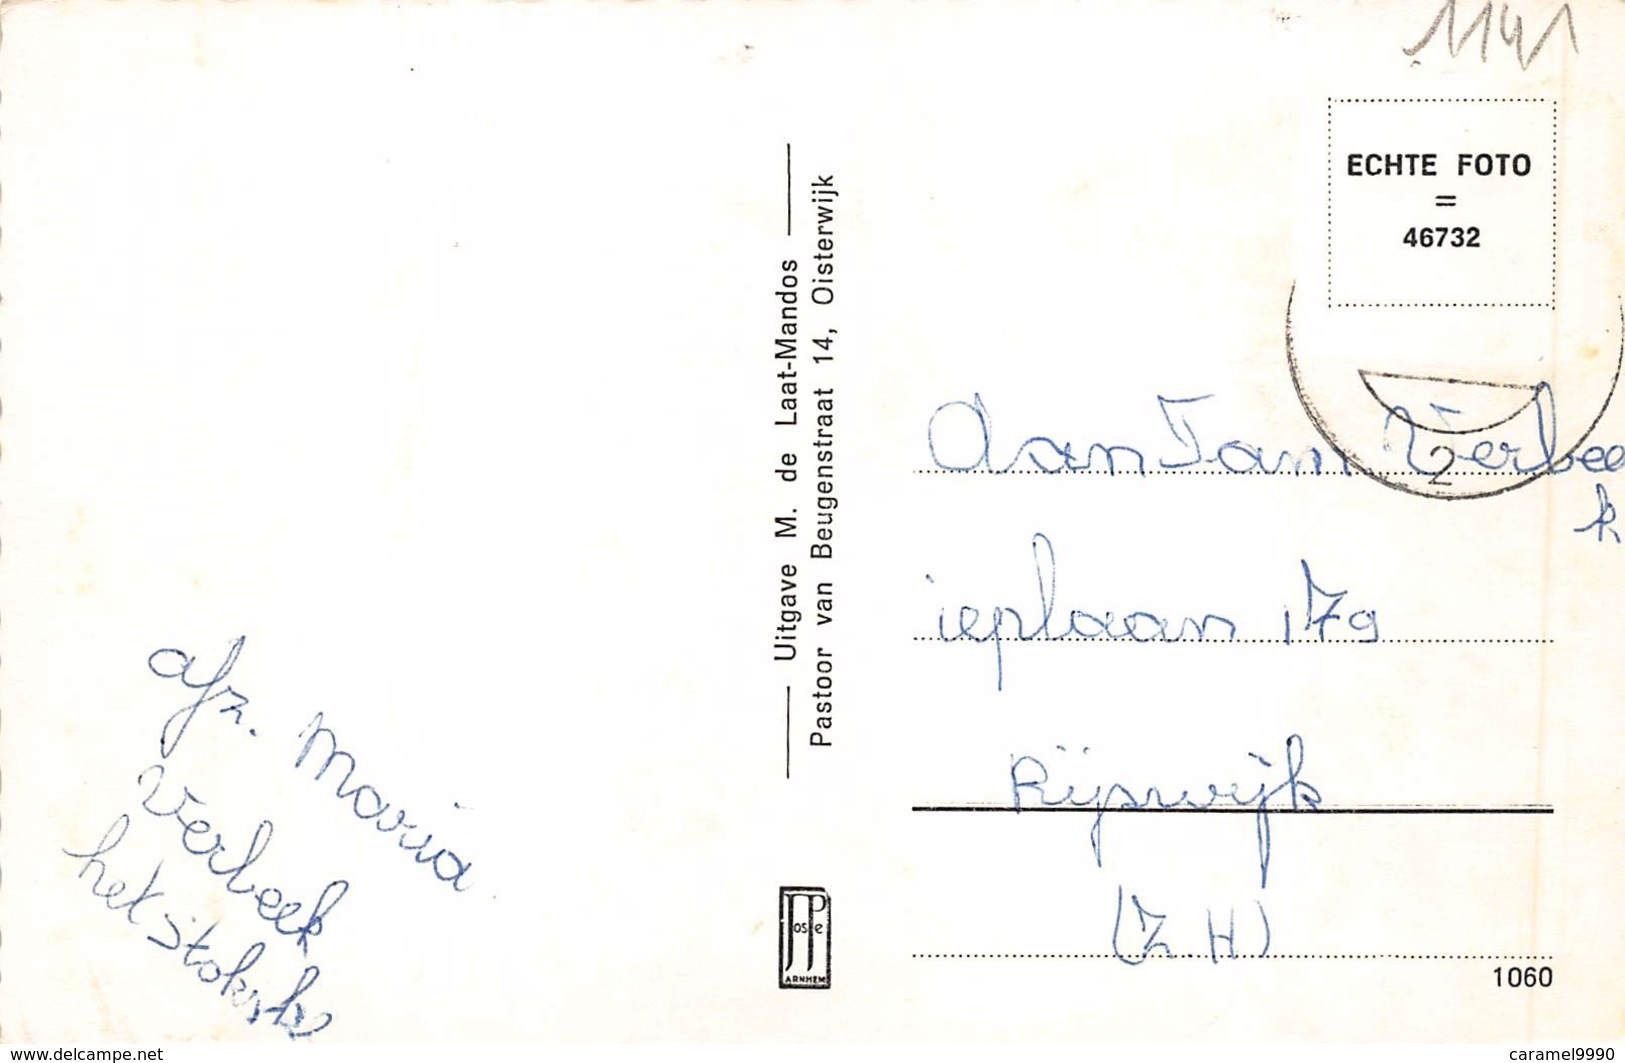 1141
ECHTE FOTO
=
46732
2
Uitgave M. de Laat-Mandos
Pastoor van Beugenstraat 14, Oisterwijk
Aan Jan Verbee
k
ieplaan 179
Rijswijk
(Z.H)
afz. Maria
Verbeek
het Stoks
JosPe
ARNHEM
1060
www.delcampe.net
caramel9990